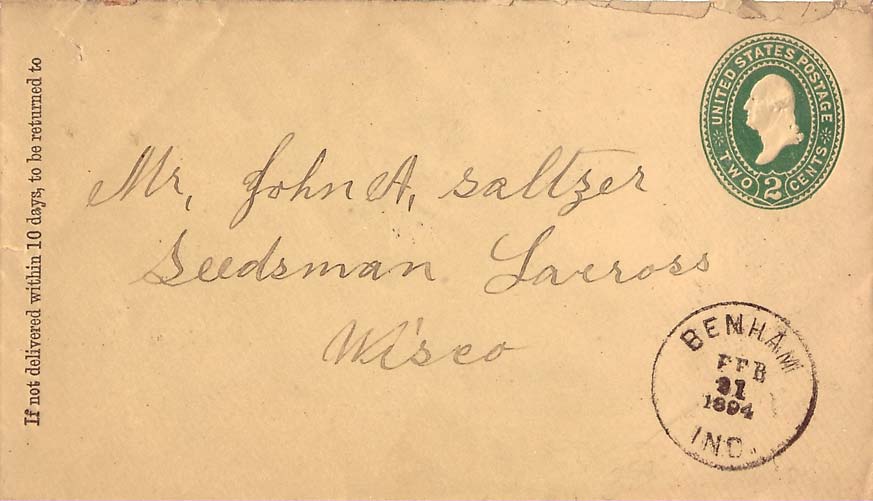 If not delivered within 10 days, to be returned to
UNITED STATES POSTAGE
TWO 2 CENTS
Mr, John A, saltzer
Seedsman Lacross
Wisco
BENHAM
FEB
21
1894
IND.